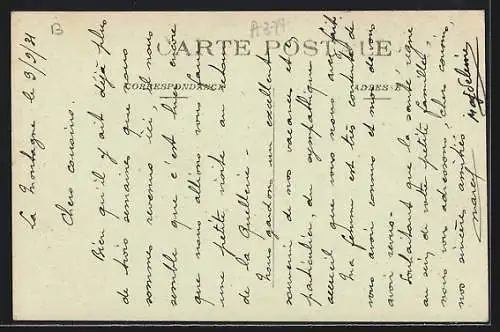 CARTE POSTALE
CORRESPONDANCE
ADRESSE
B
La Montagne le 9/9/31
Chers cousins.
Bien qu'il y ait déjà plus
de trois semaines que nous
sommes revenus ici il nous
semble que c'est hier encore
que nous allions vous faire
une petite visite au retour
de la
Nous gardons un excellent
souvenir de nos vacances et en
particulier, du sympathique
accueil que vous nous avez fait.
Ma femme est très contente de
vous avoir connus et moi de vous
avoir revus.
Souhaitant que la santé règne
au sein de votre petite famille,
nous vous adressons, chers cousins,
nos sincères amitiés
Marcel